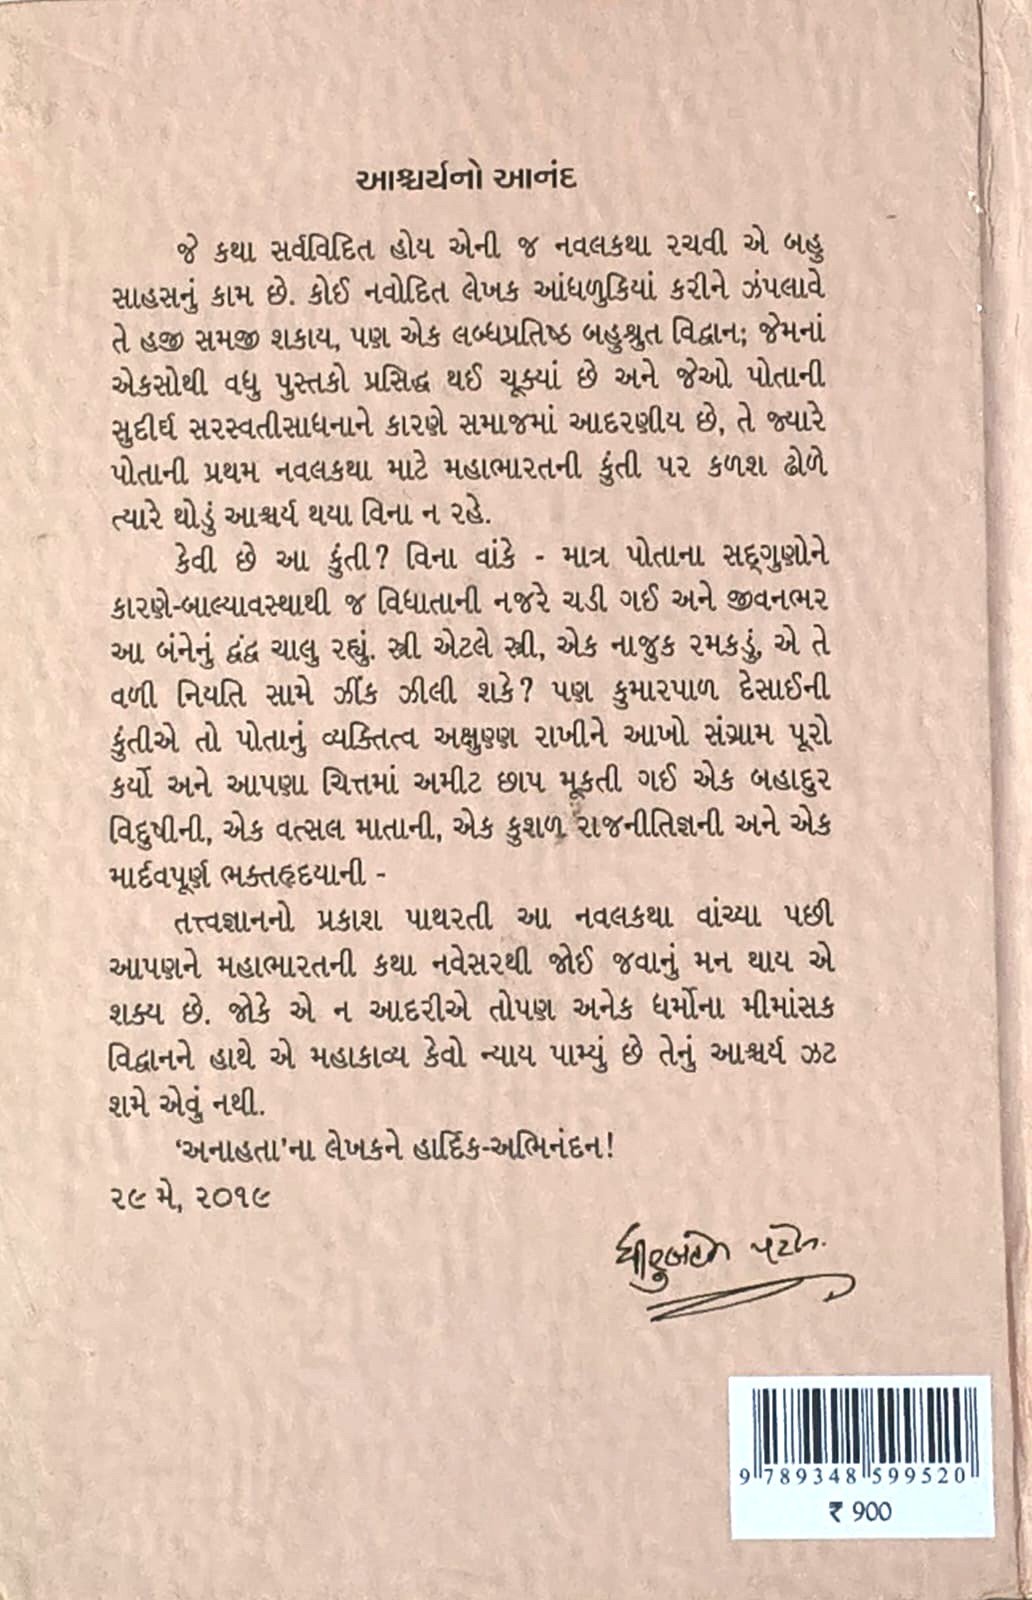 આશ્ચર્યનો આનંદ
જે કથા સર્વવિદિત હોય એની જ નવલકથા રચવી એ બહુ
સાહસનું કામ છે. કોઈ નવોદિત લેખક આંધળુકિયાં કરીને ઝંપલાવે
તે હજી સમજી શકાય, પણ એક લબ્ધપ્રતિષ્ઠ બહુશ્રુત વિદ્વાન; જેમનાં
એકસોથી વધુ પુસ્તકો પ્રસિદ્ધ થઈ ચૂક્યાં છે અને જેઓ પોતાની
સુદીર્ઘ સરસ્વતીસાધનાને કારણે સમાજમાં આદરણીય છે, તે જ્યારે
પોતાની પ્રથમ નવલકથા માટે મહાભારતની કુંતી પર કળશ ઢોળે
ત્યારે થોડું આશ્ચર્ય થયા વિના ન રહે.
કેવી છે આ કુંતી? વિના વાંકે - માત્ર પોતાના સદ્‌ગુણોને
કારણે-બાલ્યાવસ્થાથી જ વિધાતાની નજરે ચડી ગઈ અને જીવનભર
આ બંનેનું દ્વંદ્વ ચાલુ રહ્યું. સ્ત્રી એટલે સ્ત્રી, એક નાજુક રમકડું, એ તે
વળી નિયતિ સામે ઝીંક ઝીલી શકે? પણ કુમારપાળ દેસાઈની
કુંતીએ તો પોતાનું વ્યક્તિત્વ અક્ષુણ્ણ રાખીને આખો સંગ્રામ પૂરો
કર્યો અને આપણા ચિત્તમાં અમીટ છાપ મૂકતી ગઈ એક બહાદુર
વિદુષીની, એક વત્સલ માતાની, એક કુશળ રાજનીતિજ્ઞની અને એક
માર્દવપૂર્ણ ભક્તહૃદયાની -
તત્ત્વજ્ઞાનનો પ્રકાશ પાથરતી આ નવલકથા વાંચ્યા પછી
આપણને મહાભારતની કથા નવેસરથી જોઈ જવાનું મન થાય એ
શક્ય છે. જોકે એ ન આદરીએ તોપણ અનેક ધર્મોના મીમાંસક
વિદ્વાનને હાથે એ મહાકાવ્ય કેવો ન્યાય પામ્યું છે તેનું આશ્ચર્ય ઝટ
શમે એવું નથી.
‘અનાહતા’ના લેખકને હાર્દિક-અભિનંદન!
૨૯ મે, ૨૦૧૯
ધીરુબહેન પટેલ
9 789348 599520
₹ 900